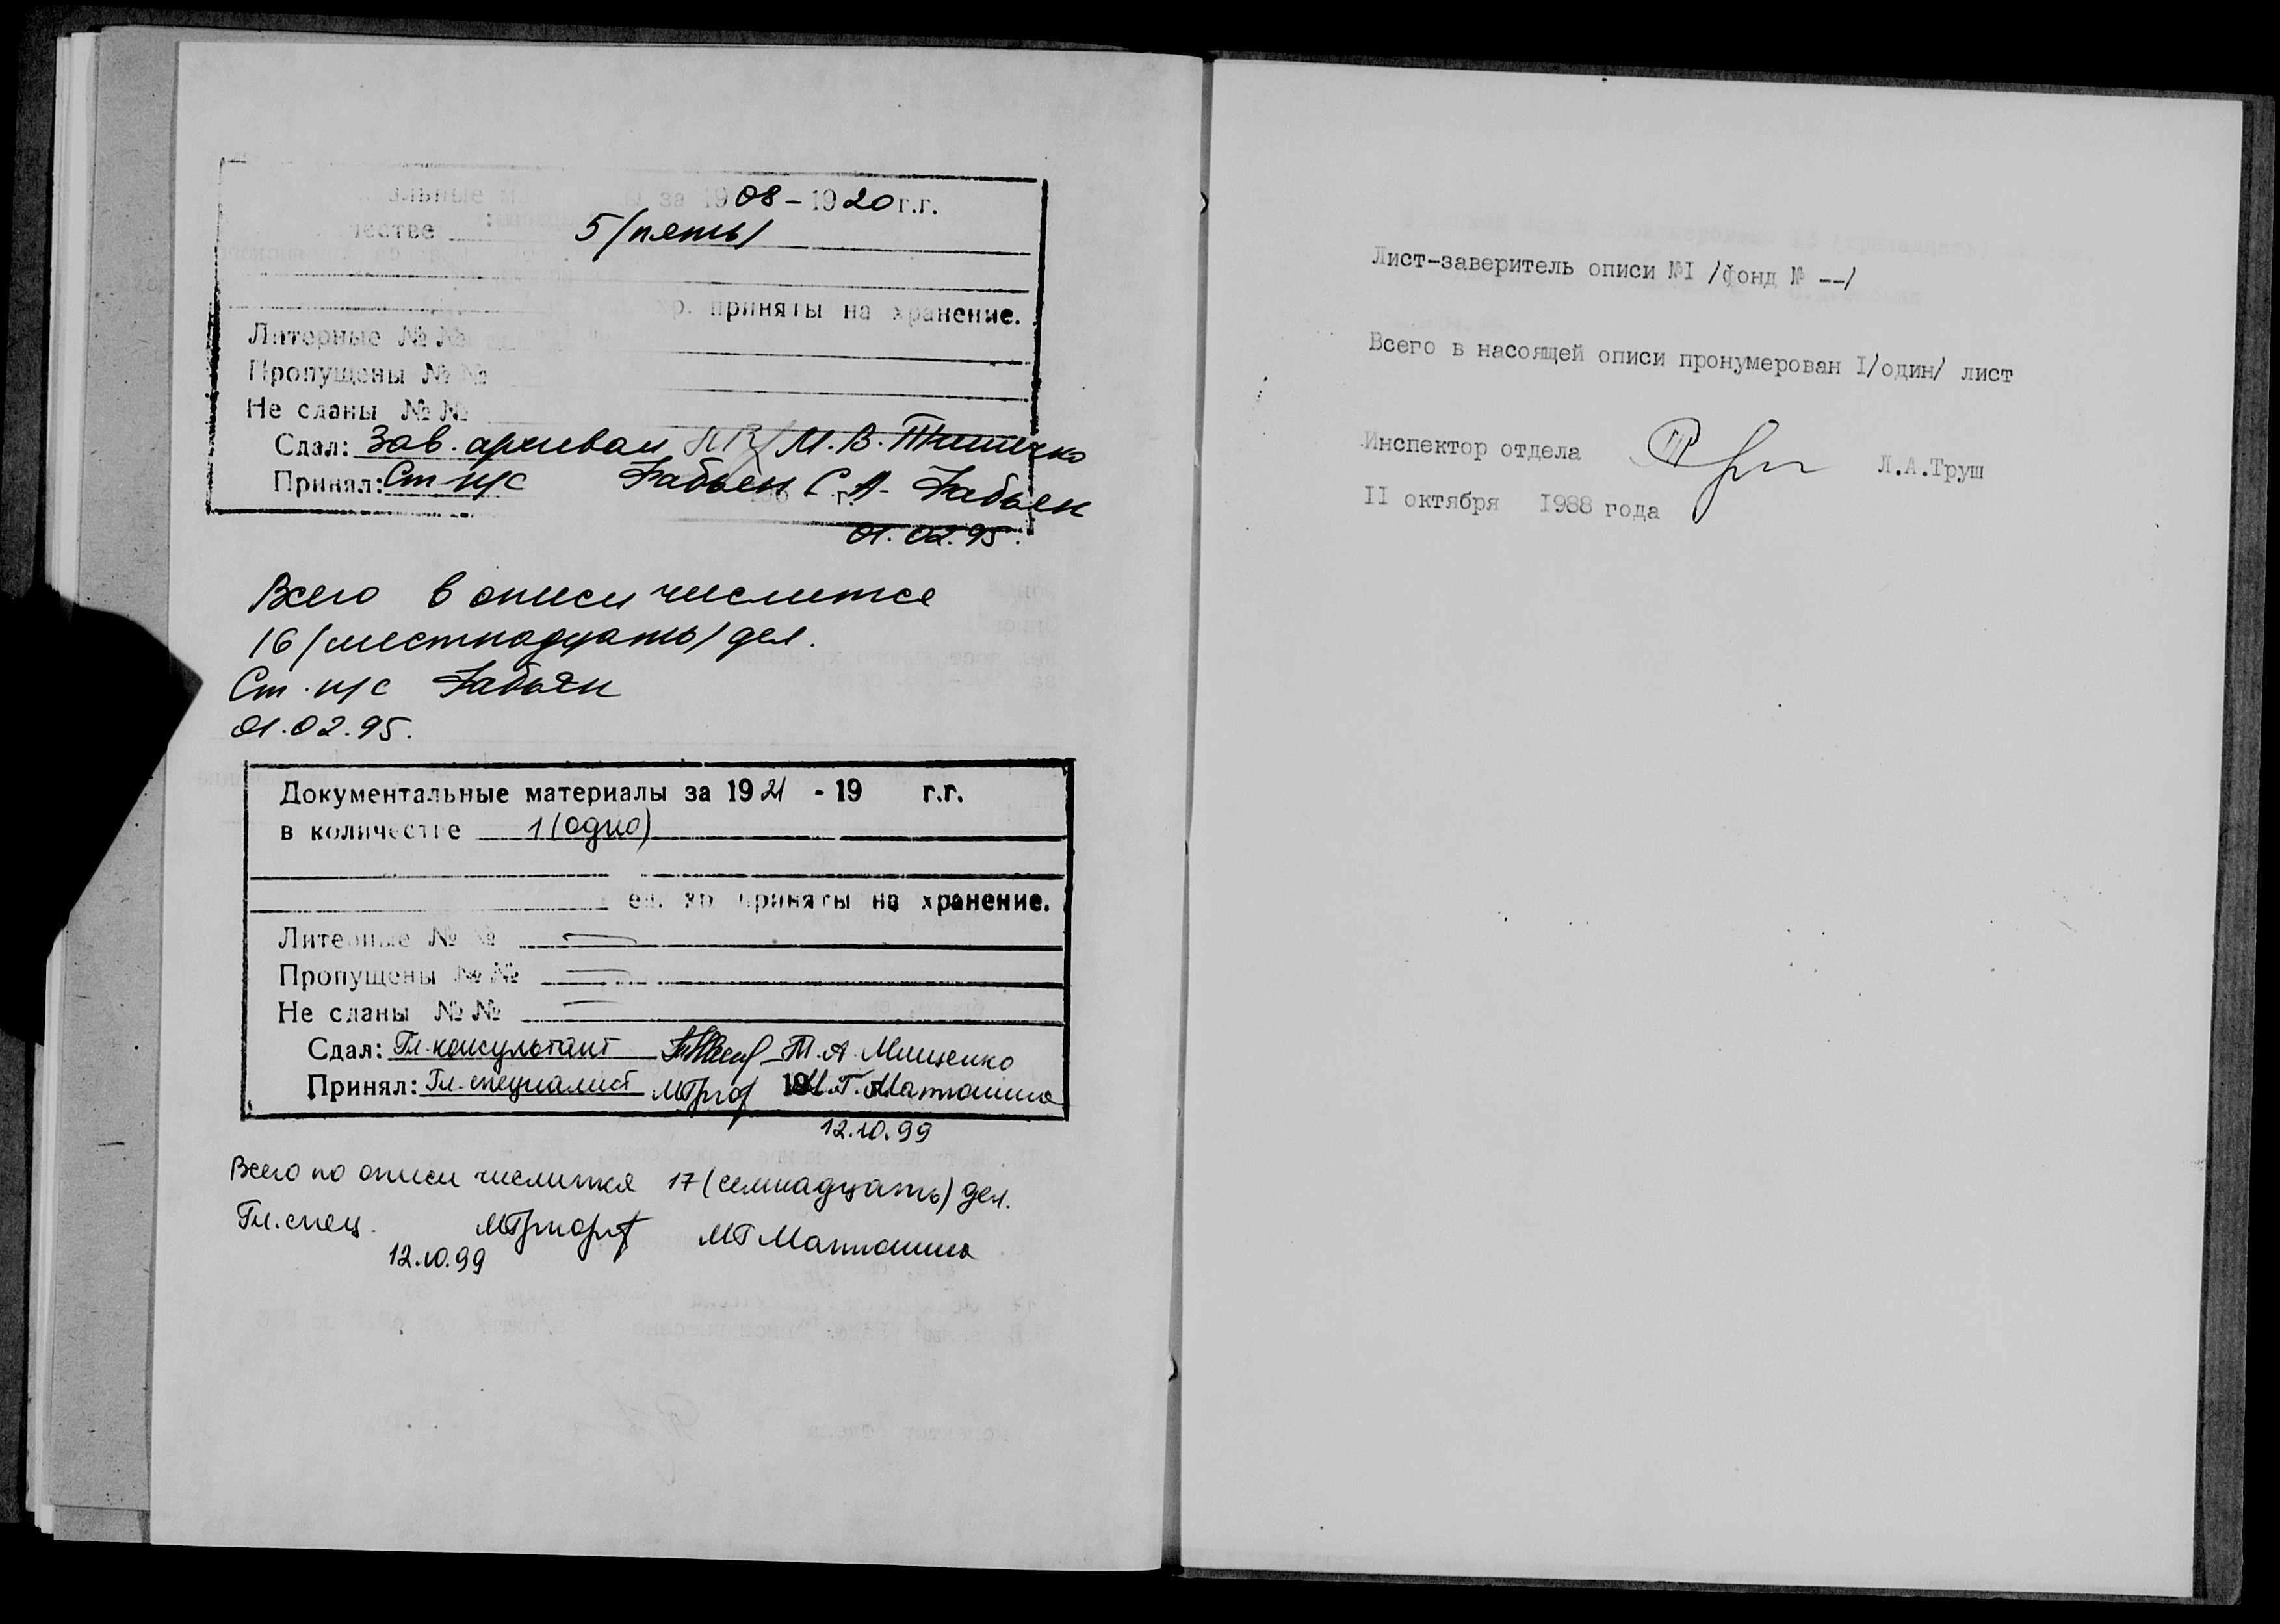 за 1908 - 1920 г.г.
5 (пять)
хр. приняты на хранение.
Литерные №№
Пропущены №№
Не сданы №№
Сдал: Зав. архивом М.В.
Принял: Ст н/с С.А.
01.02.95.
Всего в описи числится
16 (шестнадцать) дел.
Ст. н/с
01.02.95.
Документальные материалы за 1921 - 19 г.г.
в количестве 1 (одно)
ед. хр приняты на хранение.
Литерные №№ —
Пропущены №№ —
Не сданы №№ —
Сдал: Гл. консультант Т.А. Мищенко
Принял: Гл. специалист М.Г. Матюшина
12.10.99
Всего по описи числится 17 (семнадцать) дел.
Гл. спец. МГ Матюшина
12.10.99
Лист-заверитель описи №I /фонд № --/
Всего в насоящей описи пронумерован I/один/ лист
Инспектор отдела Л.А.Труш
II октября I988 года